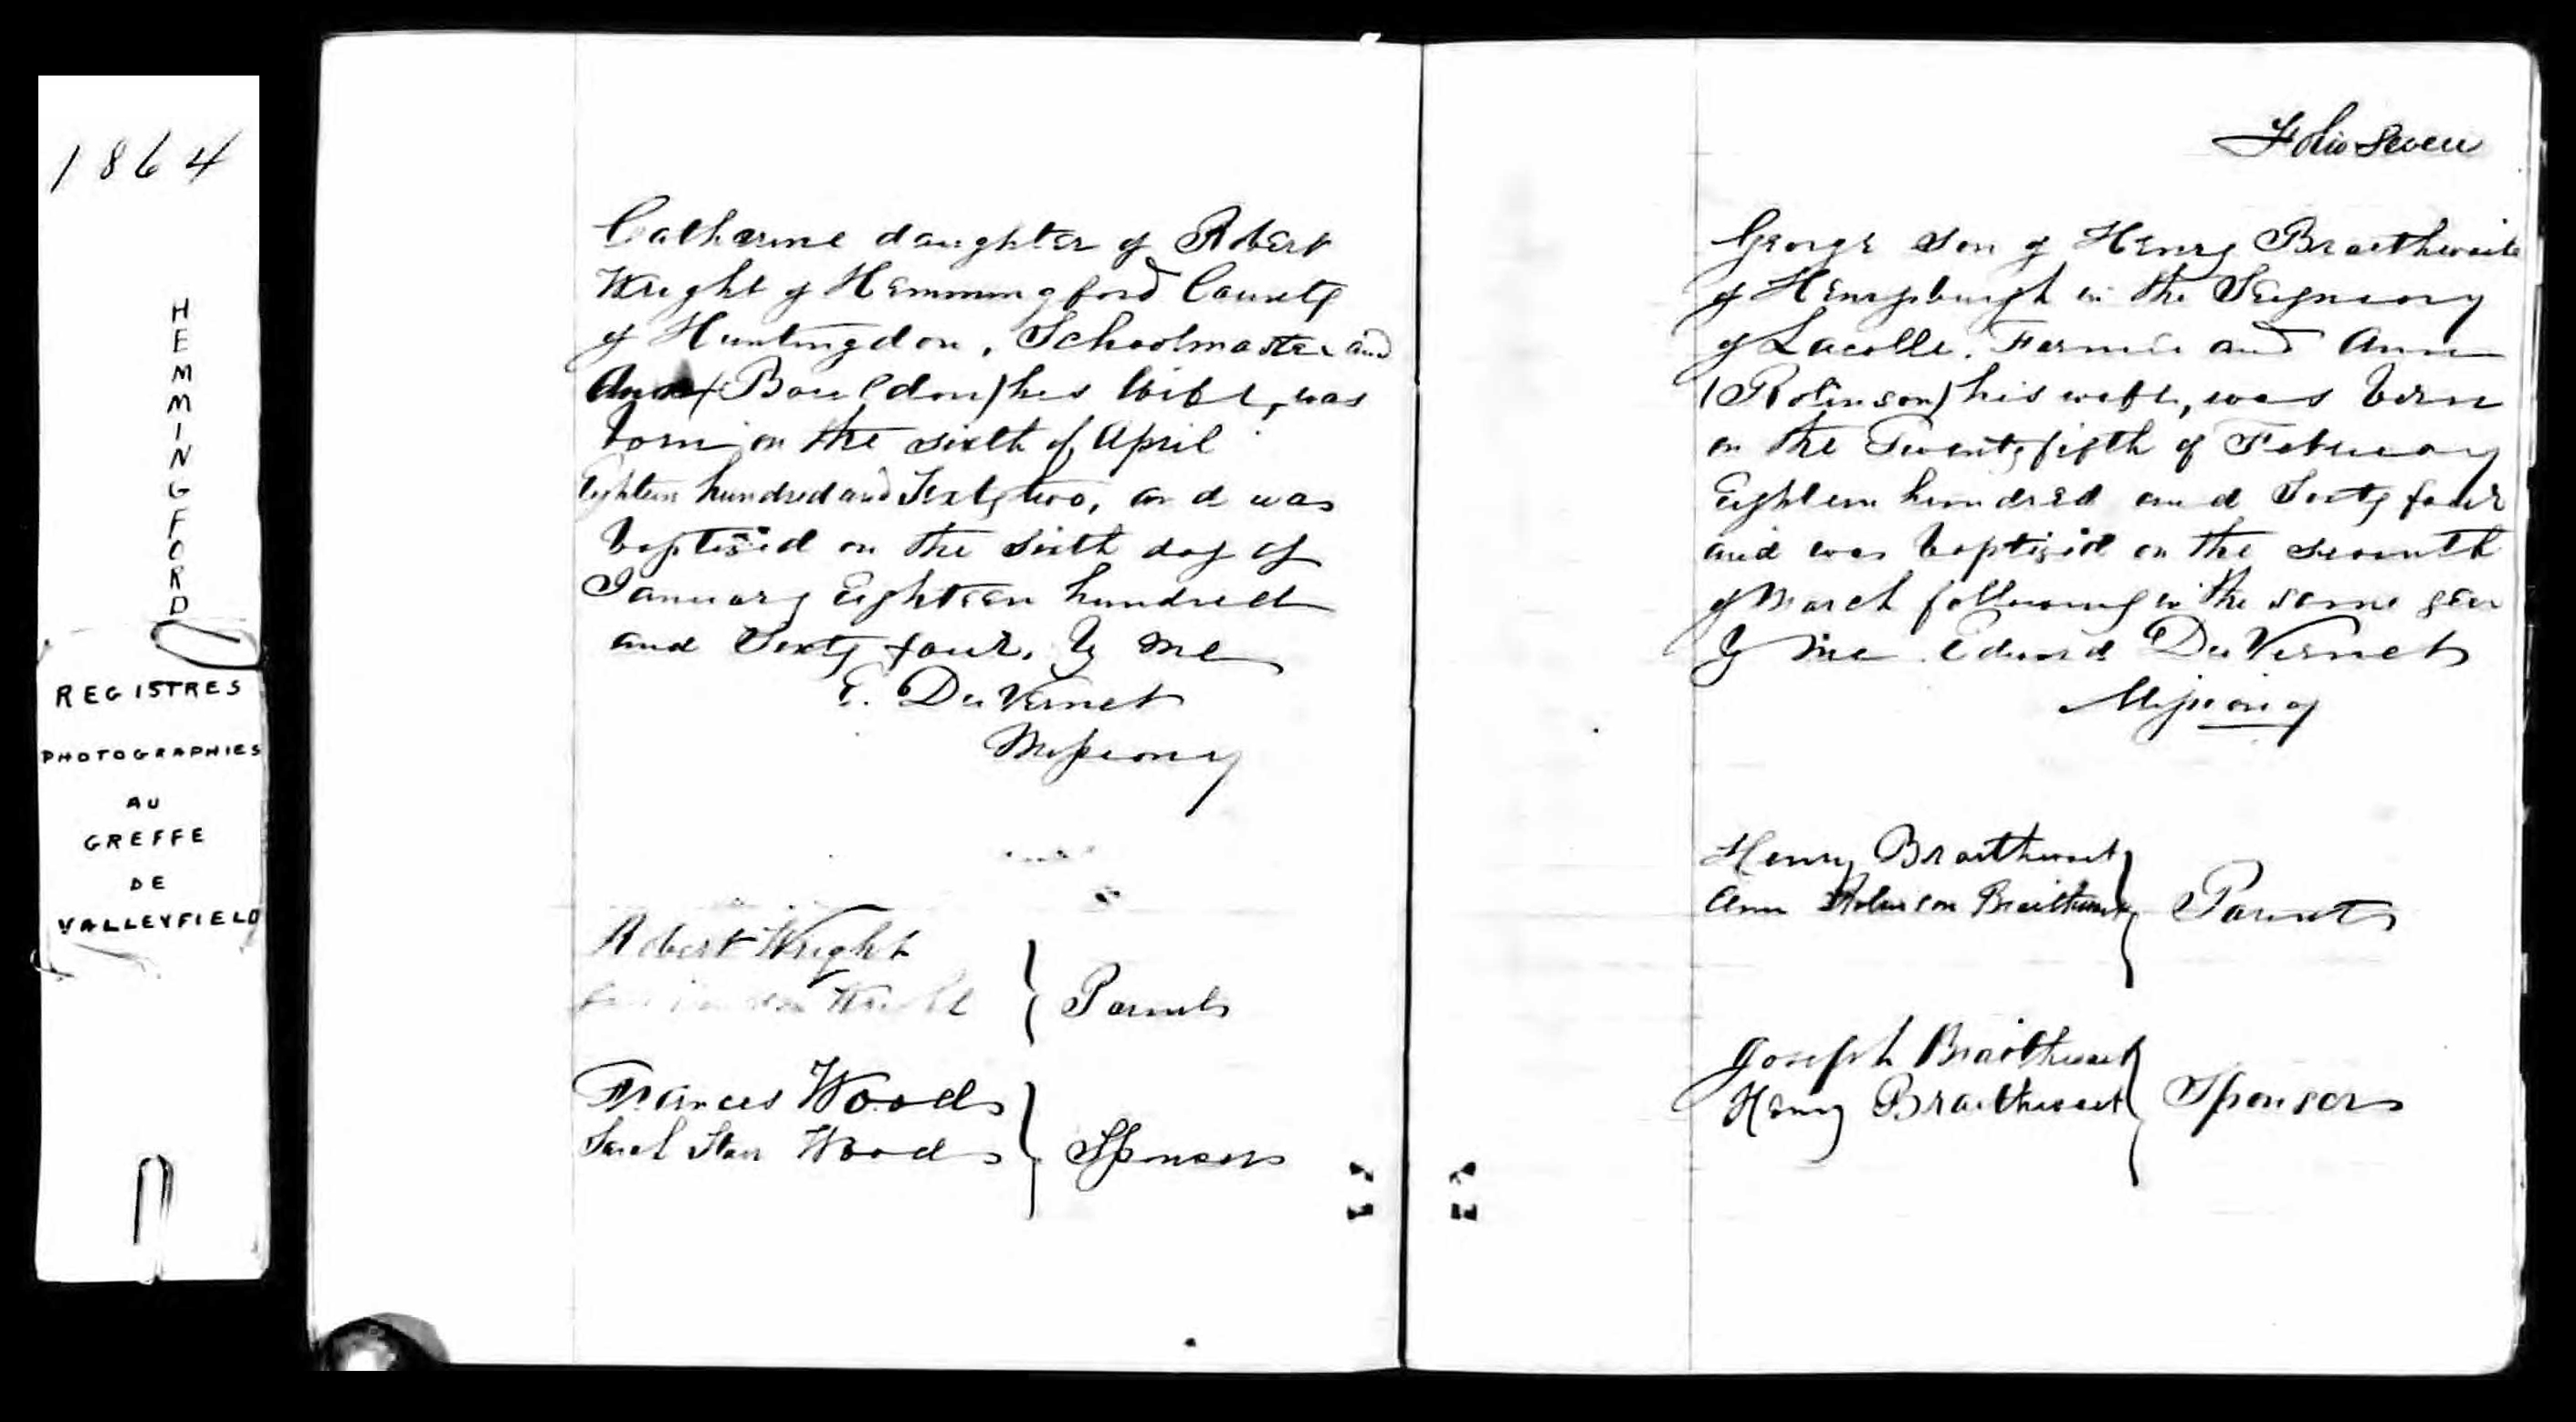 1864
HEMMINGFORD
REGISTRES
PHOTOGRAPHIES
AU
GREFFE
DE
VALLEYFIELD
Catharine daughter of Robert
Wright of Hemmingford County
of Huntingdon, Schoolmaster and
Ann (Bouldon) his Wife, was
born on the sixth of April
Eighteen hundred and Sixty two, and was
baptised on the Sixth day of
January Eighteen hundred
and Sixty four. By me
E. DuVernet
Missiony
Robert Wright
Wright
Parents
Frances Woods
Sarah Starr Woods
Sponsors
Folio Seven
George Son of Henry Braithwaite
of Henrysburgh in the Seigneory
of Lacolle. Farmer and Ann
(Robinson) his wife, was born
on the Twenty fifth of February
Eighteen hundred and Sixty four
and was baptized on the seventh
of March following in the same year
By me Edward DuVernet
Missiony
Henry Braithwait
Ann Robinson Braithwait
Parents
Joseph Braithwait
Henry Braithwait
Sponsors